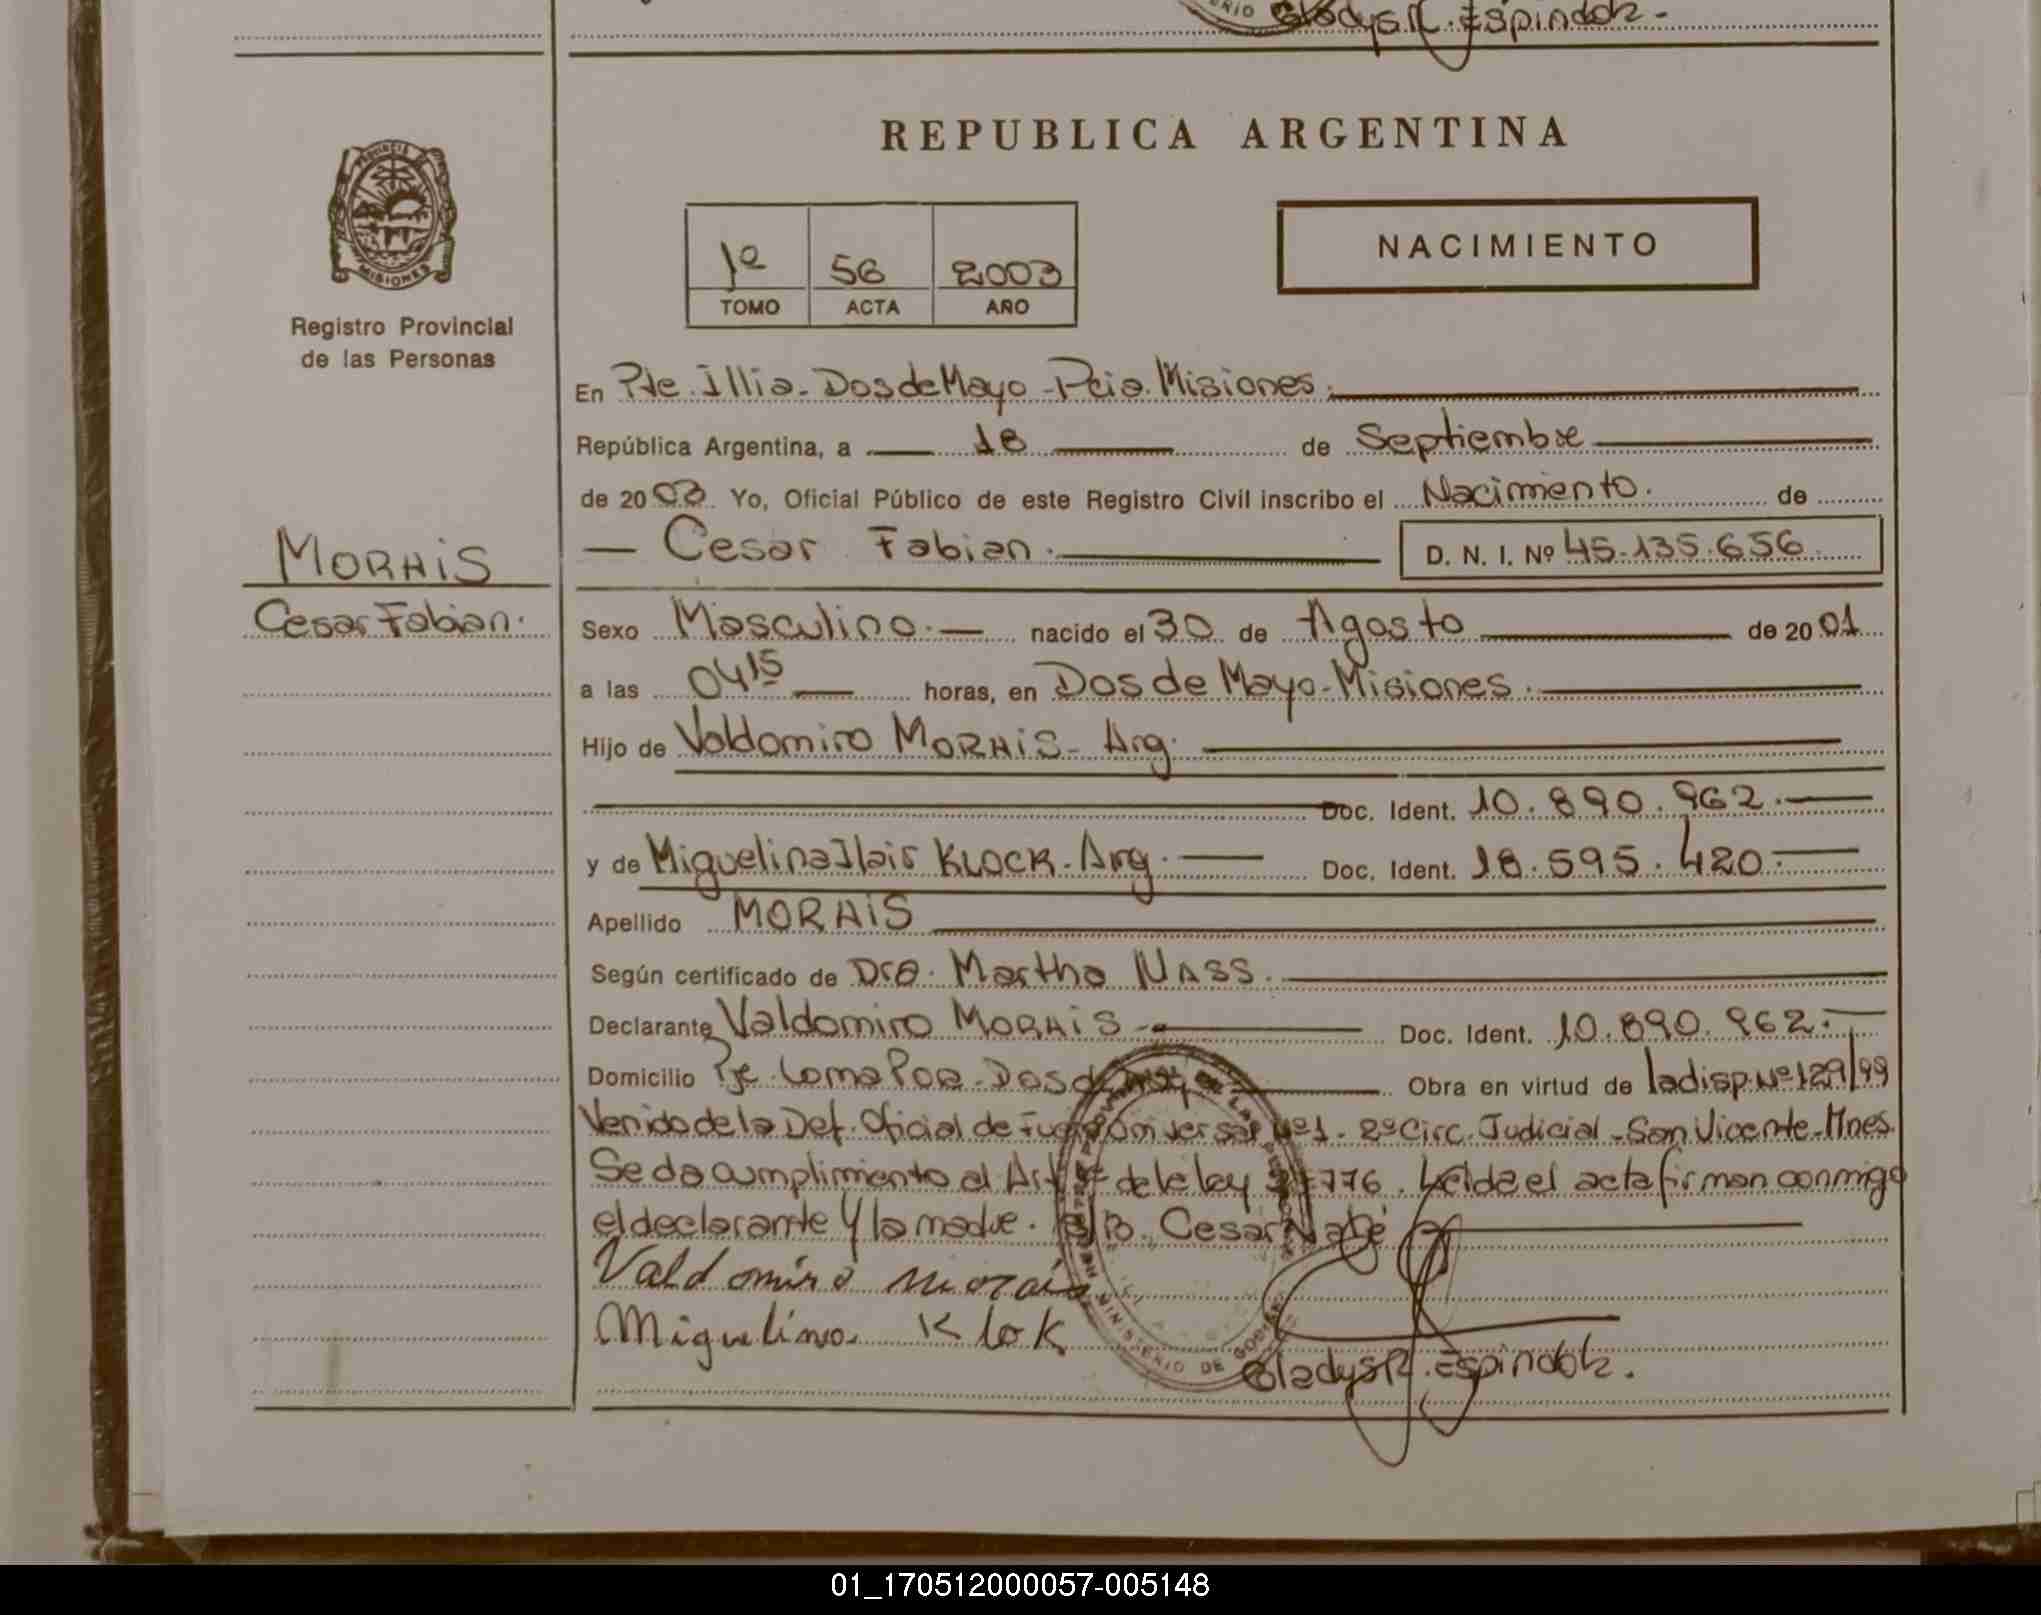 Gladys R. Espindola.
REPUBLICA ARGENTINA
PROVINCIA DE
MISIONES
Registro Provincial
de las Personas
NACIMIENTO
1º 56 2003
TOMO ACTA AÑO
En Pte. Illia - Dos de Mayo - Pcia. Misiones.
República Argentina, a 18 de Septiembre
de 2003. Yo, Oficial Público de este Registro Civil inscribo el Nacimiento. de
Cesar Fabian. D. N. I. Nº 45.135.656
MORAIS
Cesar Fabian.
Sexo Masculino. nacido el 30 de Agosto de 2001
a las 04 15 horas, en Dos de Mayo - Misiones.
Hijo de Valdomiro MORAIS - Arg.
Doc. Ident. 10.890.962.
y de Miguelina Ilair KLOCK. Arg. Doc. Ident. 18.595.420.
Apellido MORAIS
Según certificado de Dra. Martha NASS.
Declarante Valdomiro MORAIS - Doc. Ident. 10.890.962.
Domicilio Pje. Loma Por - Dos de Obra en virtud de la disp. Nº 129/99
Venido de la Def. Oficial de Nº1. 2º Circ. Judicial - San Vicente - Mnes.
Se da cumplimiento al Art de la ley 776. Leida el acta firman conmigo
el declarante y la madre. Cesar
Valdomiro morais
Miguelina Klok
MINISTERIO DE GOBIERNO
Gladys R. Espindola.
01_170512000057-005148